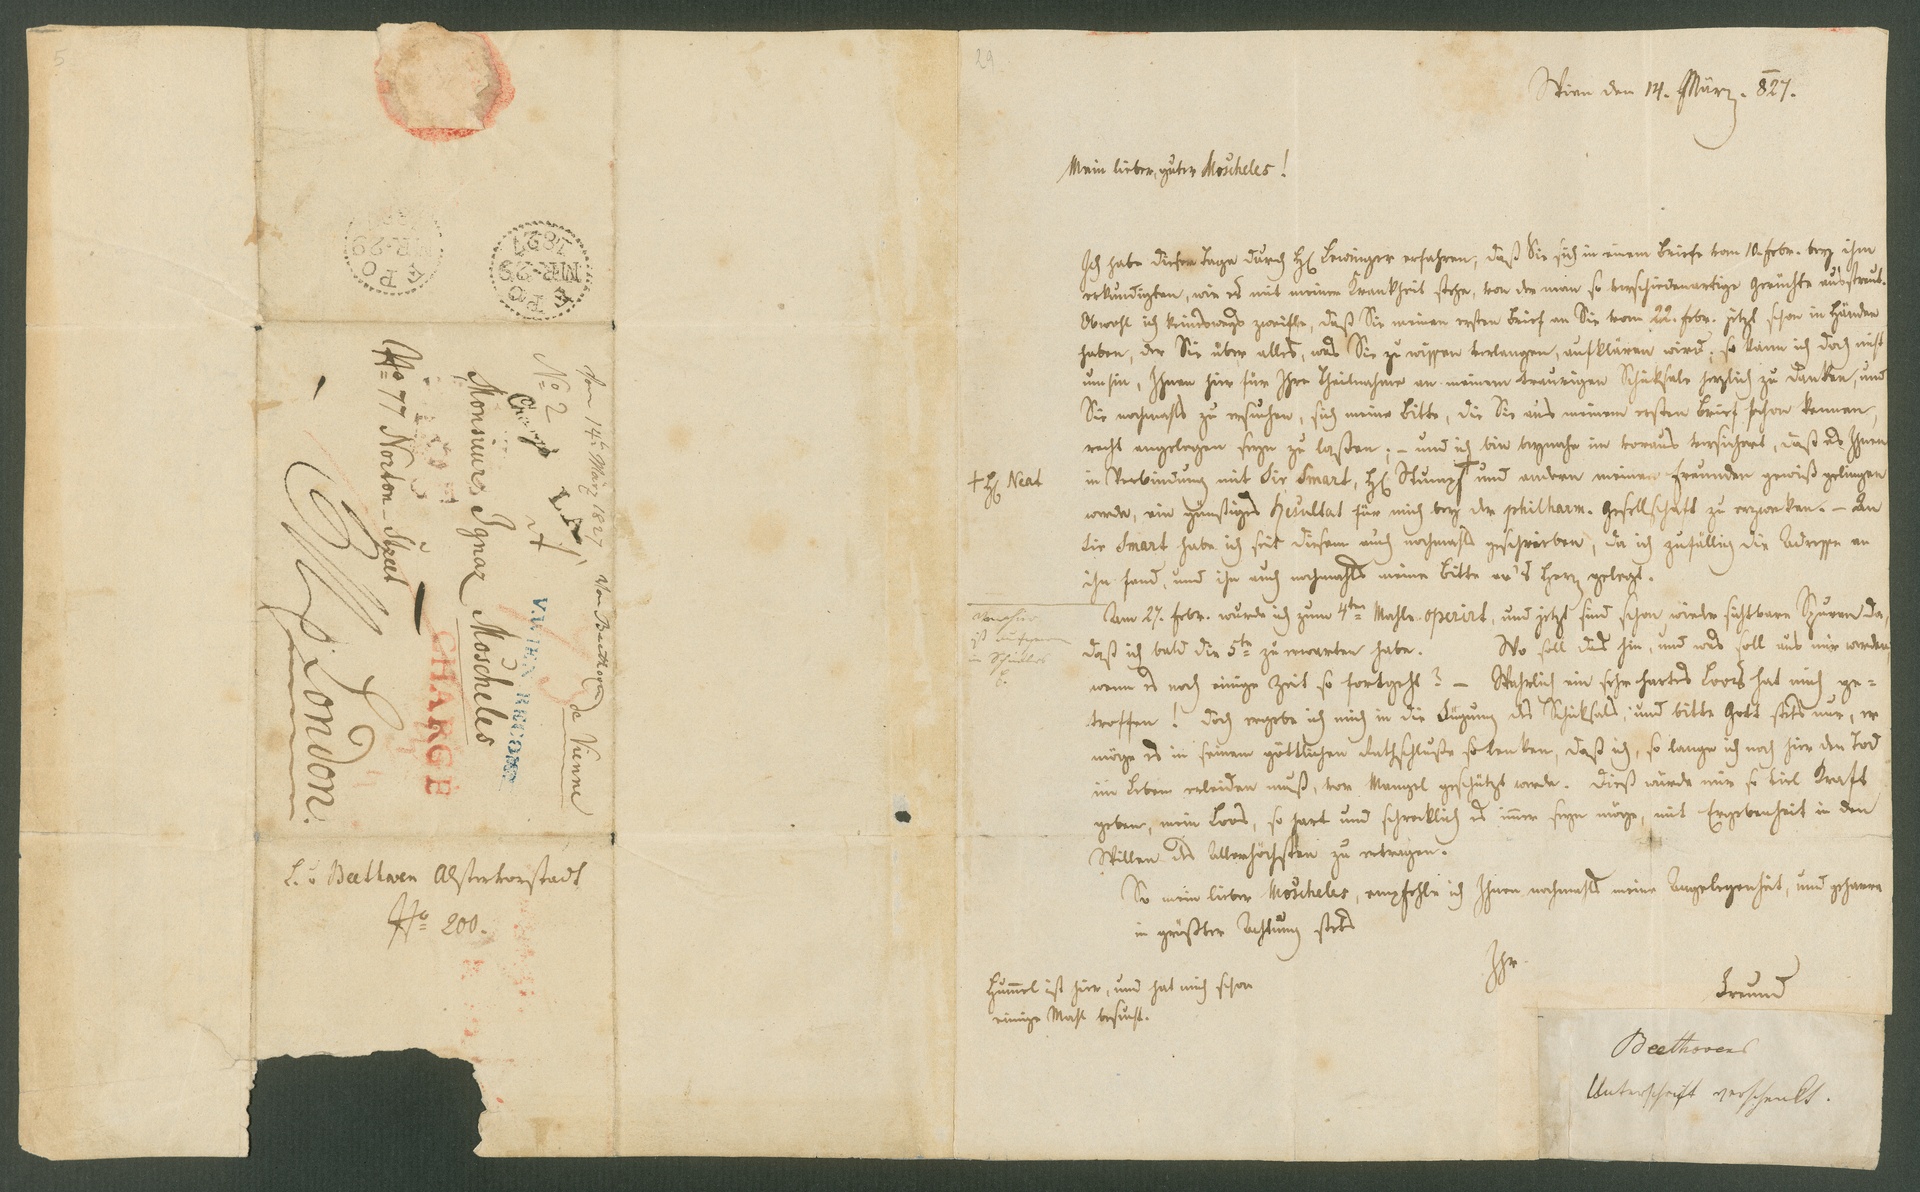 5
F.P.O
MR-29
1827
F.P.O
MR-29
vom 14t März 1827 von Beethoven
de Vienne
No 2
Charge
V.WIEN RECOM
Monsieur Ignaz Moscheles
CHARGE
No 77 Norton-Street
London.
L. v Beethoven Alstervorstadt
No 200.
29
Wien den 14. März. 827.
Mein lieber, guter Moscheles!
Ich habe dieser Tage durch H. Lewinger erfahren, daß Sie sich in einem Briefe vom 10. Febr. bey ihm
erkundigten, wie es mit meiner Krankheit stehe, von der man so verschiedenartige Gerüchte ausstreut.
Obwohl ich keineswegs zweifle, daß Sie meinen ersten Brief an Sie vom 22. Febr. jetzt schon in Händen
haben, der Sie über alles, was Sie zu wissen verlangen, aufklären wird, so kann ich doch nicht
umhin, Ihnen hier für Ihre Theilnahme an meinem traurigen Schicksale herzlich zu danken, und
Sie nochmahls zu ersuchen, sich meine Bitte, die Sie aus meinem ersten Brief schon kennen,
recht angelegen seyn zu lassen; – und ich bin beynahe im voraus versichert, daß es Ihnen
in Verbindung mit Sir Smart, H. Stumpf + und andern meiner Freunden gewiß gelingen
+ H. Neat
werde, ein günstiges Resultat für mich bey der philharm. Gesellschaft zu erzwecken. – An
Sir Smart habe ich seit diesem auch nochmahls geschrieben, da ich zufällig die Adresse an
ihn fand, und ihm auch nochmahls meine Bitte an's Herz gelegt.
Am 27. Febr. wurde ich zum 4ten Mahle operirt, und jetzt sind schon wieder sichtbare Spuren da,
daß ich bald die 5te zu erwarten habe. Wo soll das hin, und was soll aus mir werden,
wenn es noch einige Zeit so fortgeht? – Wahrlich ein sehr hartes Loos hat mich ge=
troffen! Doch ergebe ich mich in die Fügung des Schicksals, und bitte Gott stets nur, er
möge es in seinem göttlichen Rathschluße so lenken, daß ich, so lange ich noch hier den Tod
im Leben erleiden muß, vor Mangel geschützt werde. Dieß würde mir so viel Kraft
geben, mein Loos, so hart und schrecklich es immer seyn möge, mit Ergebenheit in den
Willen des Allerhöchsten zu ertragen.
So mein lieber Moscheles, empfehle ich Ihnen nochmahls meine Angelegenheit, und geharre
in größter Achtung stets
Ihr
Freund
Hummel ist hier, und hat mich schon
einige Mahl besucht.
Beethovens
Unterschrift verschenkt.